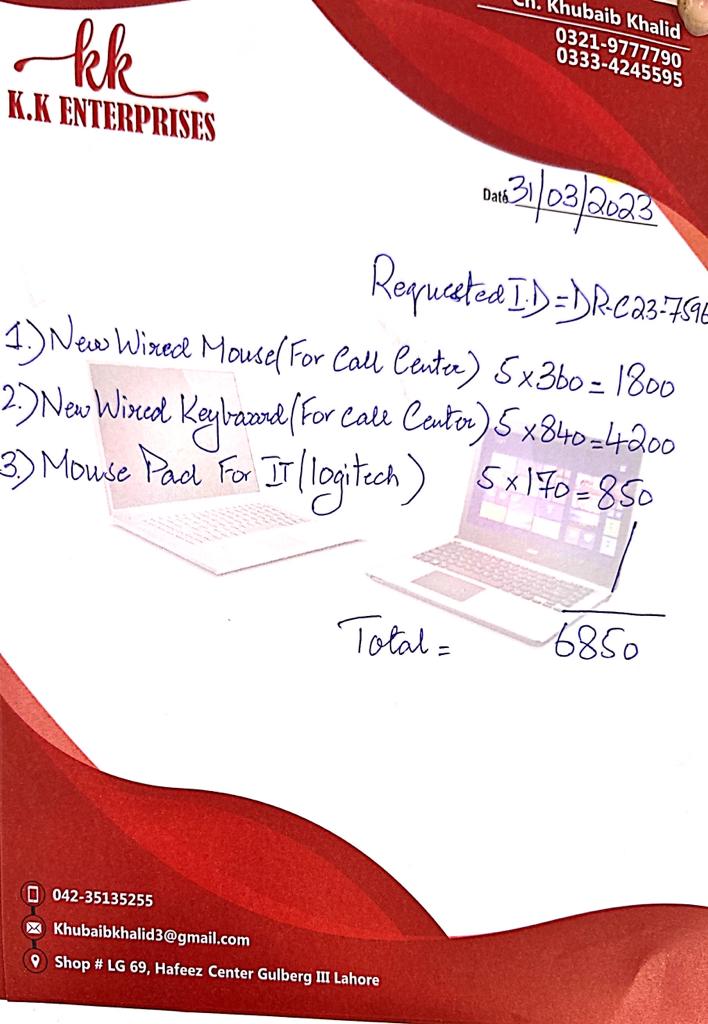 Ch. Khubaib Khalid
0321-9777790
0333-4245595
kk
K.K ENTERPRISES
Date 31/03/2023
Requested I.D = DR-C23-7596
1.) New Wired Mouse (For Call Center) 5 x 360 = 1800
2.) New Wired Keyboard (For Call Center) 5 x 840 = 4200
3.) Mouse Pad For IT (logitech) 5 x 170 = 850
Total = 6850
042-35135255
Khubaibkhalid3@gmail.com
Shop # LG 69, Hafeez Center Gulberg III Lahore